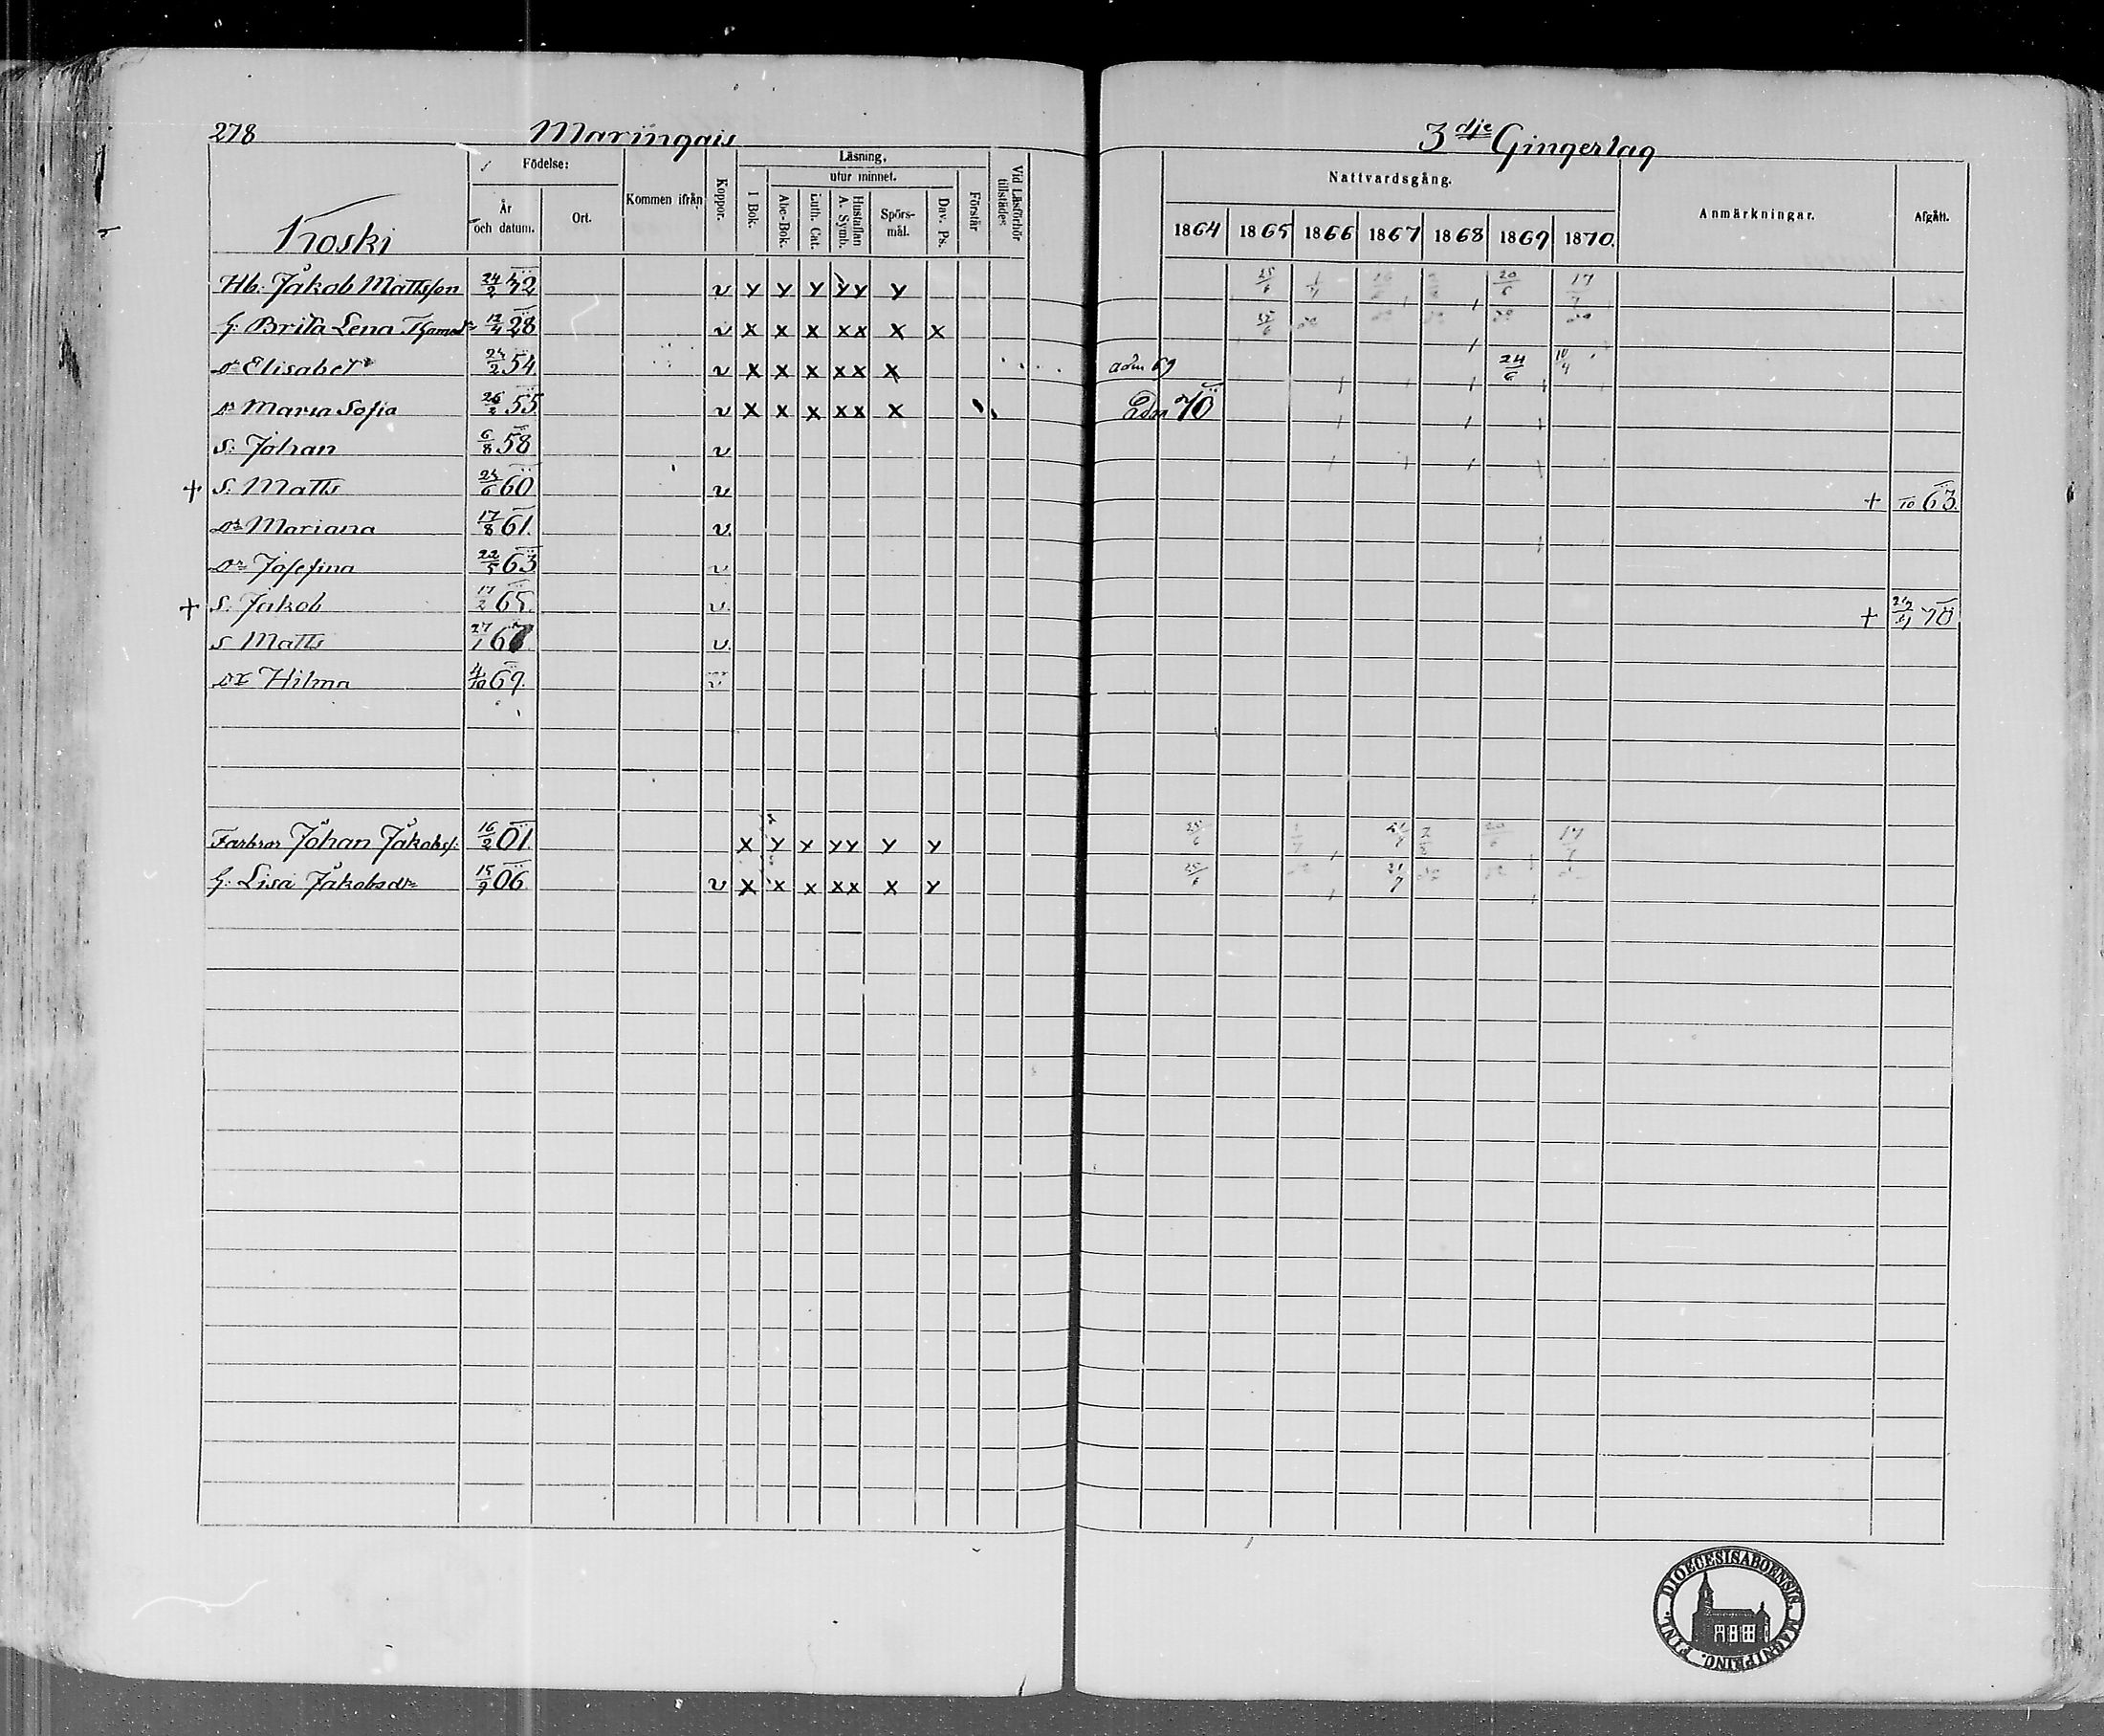 278 Maringais 3dje Gingerlag
Födelse: Läsning, Nattvardsgång.
utur minnet.
Kommen ifrån Koppor. I Bok. Abc-Bok. Luth. Cat. Hustaflan A. Symb. Spörsmål. Dav. Ps. Förstår Vid Läsförhör tillstädes Anmärkningar. Afgått.
År och datum. Ort.
1864 1865 1866 1867 1868 1869 1870.
Koski
Hb. Jakob Mattsson 24/2 42 v y y y yy y 25/6 20/6 17/7
H. Brita Lena 12/4 28 v x x x xx x x 25/6
dr Elisabet 24/2 54 v x x x xx x adm 69 24/6 10/4
dr Maria Sofia 26/2 55 v x x x xx x Adm 70
S. Johan 6/8 58 v
+ S. Matts 24/6 60 v + 10 63.
Dr Mariana 17/8 61. v.
Dr Josefina 22/5 63 v
+ S. Jakob 17/2 65. v. + 70
S Matts 27/1 67 v.
Dr Hilma 4/10 69. v
Farbror Johan Jakobss. 16/2 01 x y y yy y y 25/6 21/7 17/7
H. Lisa Jakobsdr 15/9 06 v x x x xx x y 25/6 21/7
DIOECESIS ABOENSIS. MAGNI PRINC. FINL.